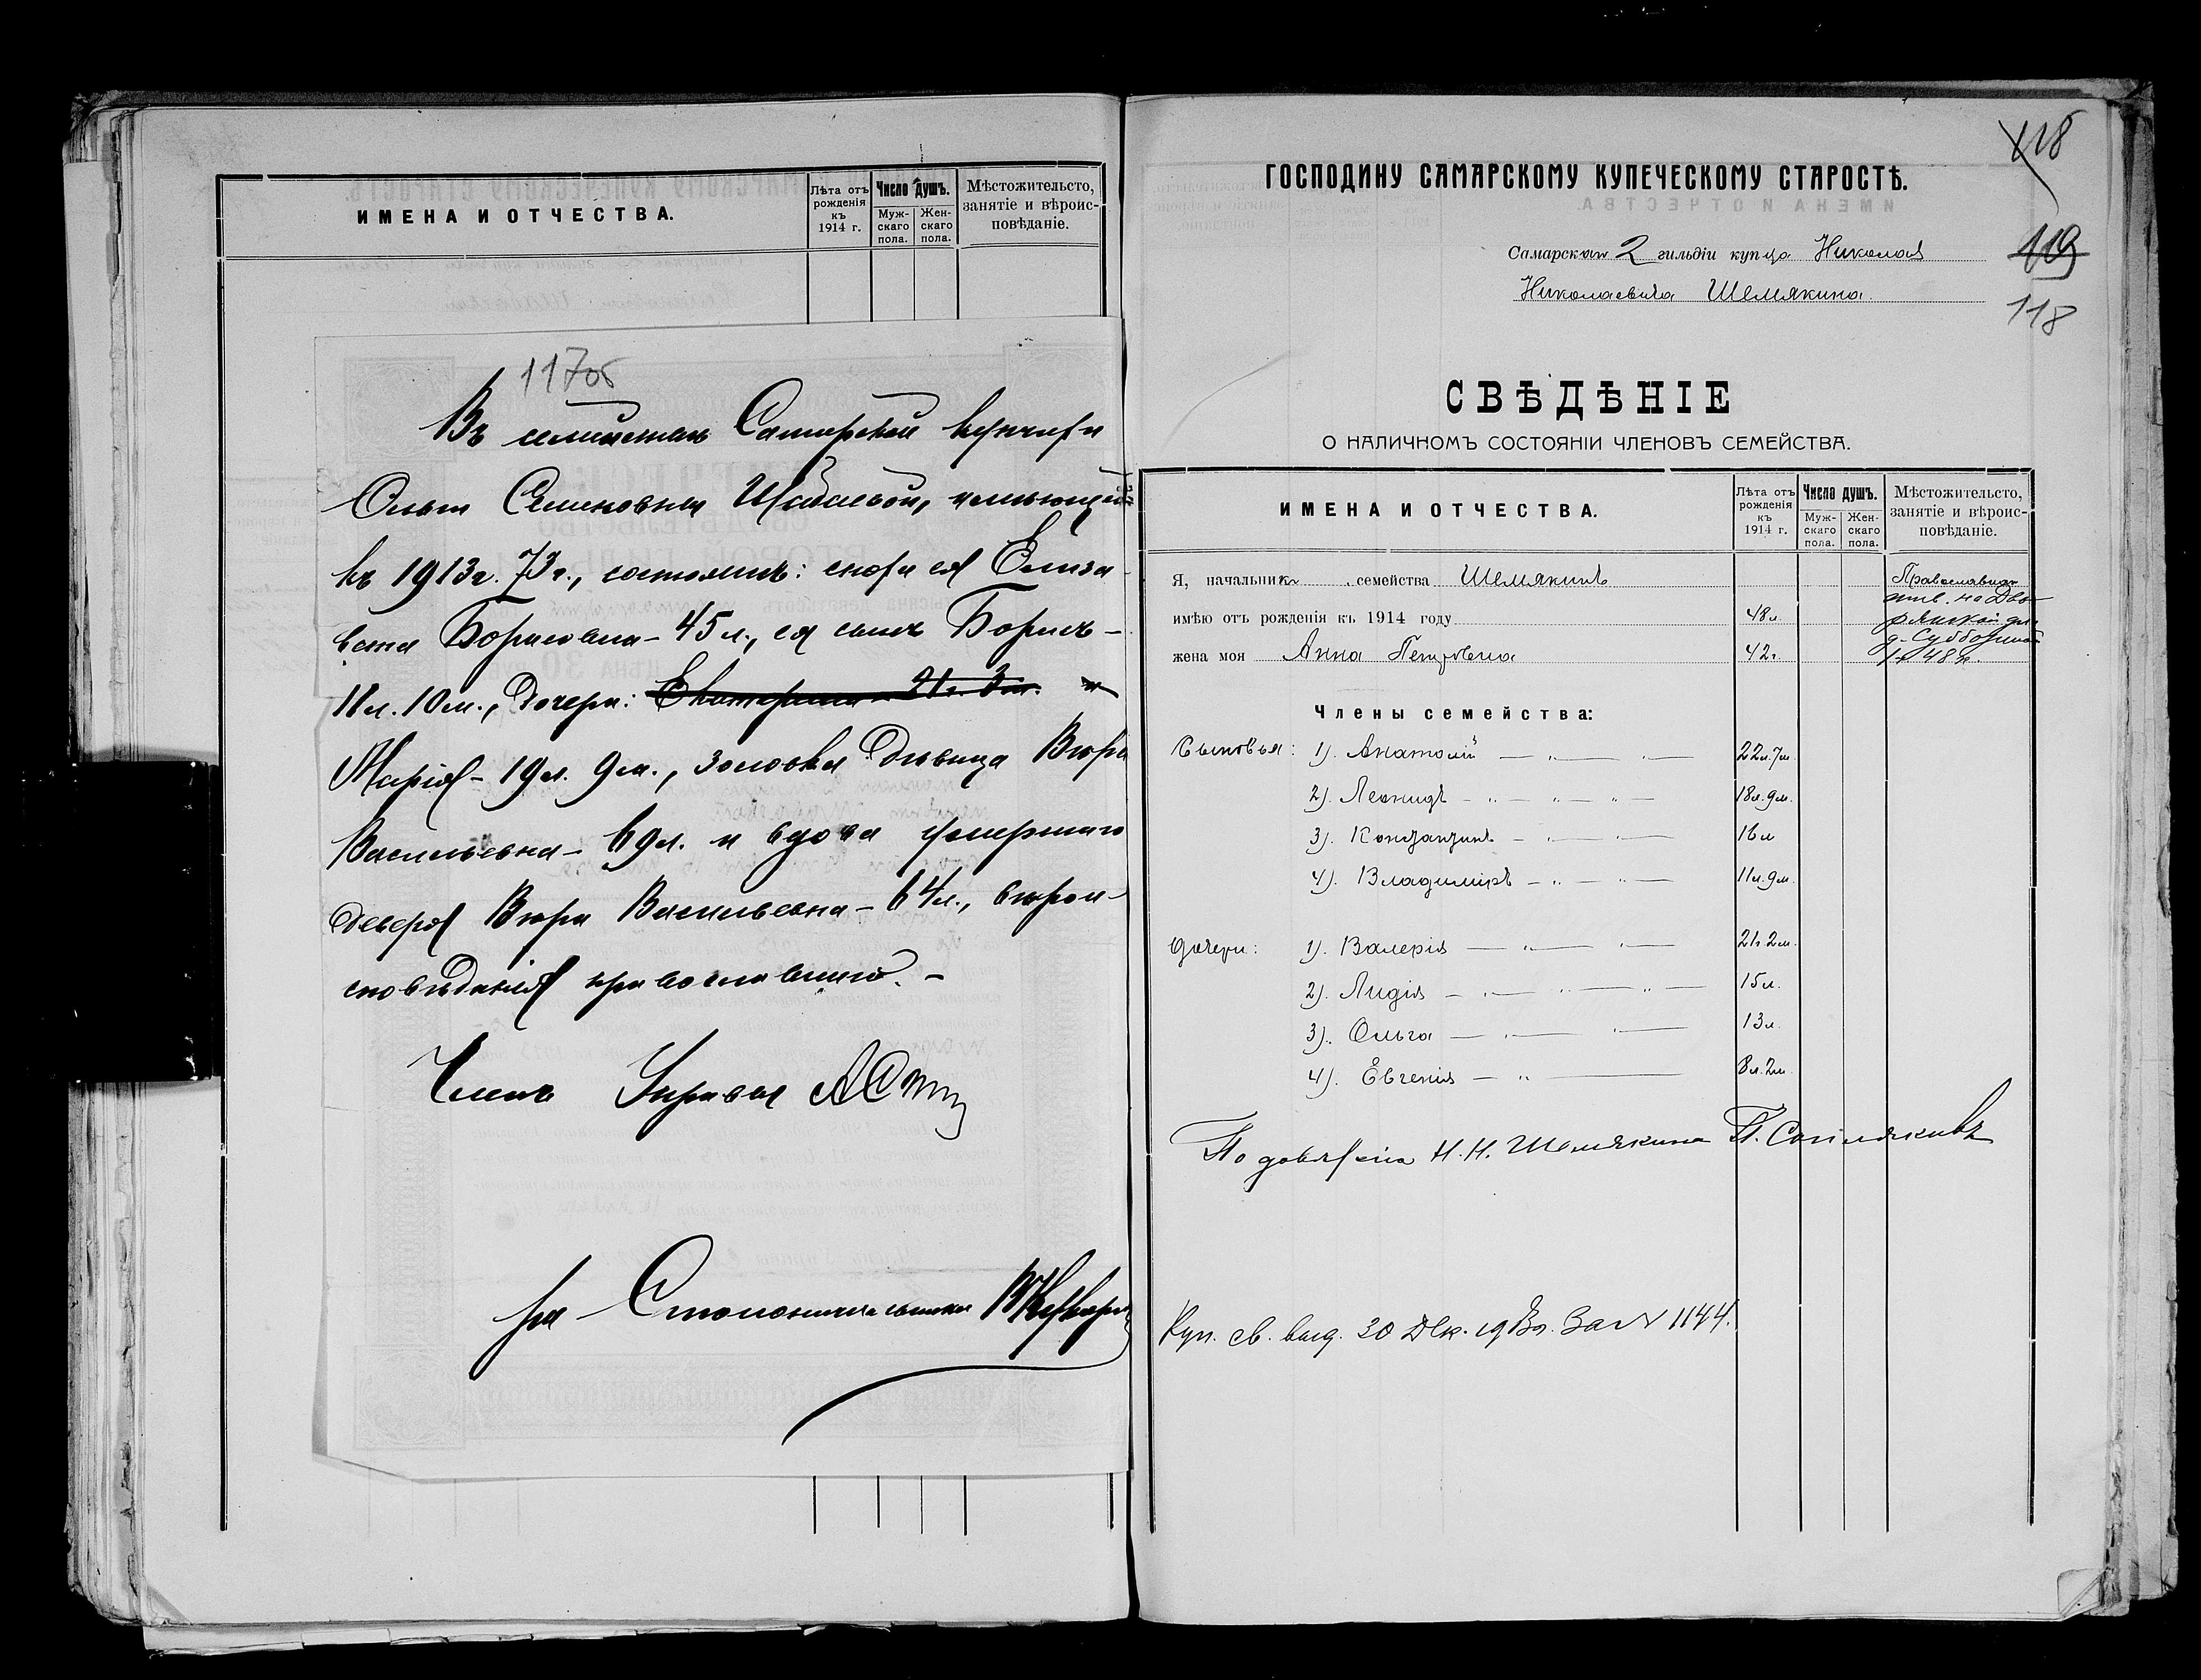 ИМЕНА И ОТЧЕСТВА.
Лѣта отъ рожденія къ 1914 г.
Число душъ.
Муж-скаго пола.
Жен-скаго пола.
Мѣстожительсто, занятіе и вѣроис-повѣданіе.
117об
Въ Самарской купчихи
Ольги Семеновны имѣющей
къ 1913г. 73г., состоятъ: сноха ея Елиза
вета Борисовна - 45 л., ея сынъ Борисъ -
11 л. 10 м., дочери: Екатерина 21г. 3м. и
Марія - 19 л. 9 м., золовка дѣвица Вѣра
Васильевна - 69 л. и вдова умершаго
деверя Вѣра Васильевна - 64 л., вѣрои-
сповѣданія православнаго. -
Членъ Управы
За Столоначальника
118
119
118
ГОСПОДИНУ САМАРСКОМУ КУПЕЧЕСКОМУ СТАРОСТѢ.
Самарскаго 2 гильдіи купца Николая
Николаевича Шемякина.
СВѢДѢНІЕ
О НАЛИЧНОМЪ СОСТОЯНІИ ЧЛЕНОВЪ СЕМЕЙСТВА.
ИМЕНА И ОТЧЕСТВА.
Лѣта отъ рожденія къ 1914 г.
Число душъ.
Муж-скаго пола.
Жен-скаго пола.
Мѣстожительсто, занятіе и вѣроис-повѣданіе.
Я, начальникъ семейства Шемякинъ
имѣю отъ рожденія къ 1914 году 48 л.
жена моя Анна Петровна 42 г.
Православная
жив. на Дво
рянской
д. Субботиной
№ 48
Члены семейства:
Сыновья: 1). Анатолій — „ — „ — 22л. 7м.
2). Леонидъ - „ — „ — „ — 18л. 9м.
3). Константинъ - „ — „ — 16 л
4). Владиміръ - „ — „ — 11л. 9м.
дочери: 1). Валерія — „ — „ — 21г. 2м.
2). Лидія — „ — „ — „ — 15 л.
3). Ольга — „ — „ — 13 л.
4). Евгенія — „ — 8л. 2м.
По Н. Н. Шемякина
Куп. св. выд. 30 Дек. за № 1144.